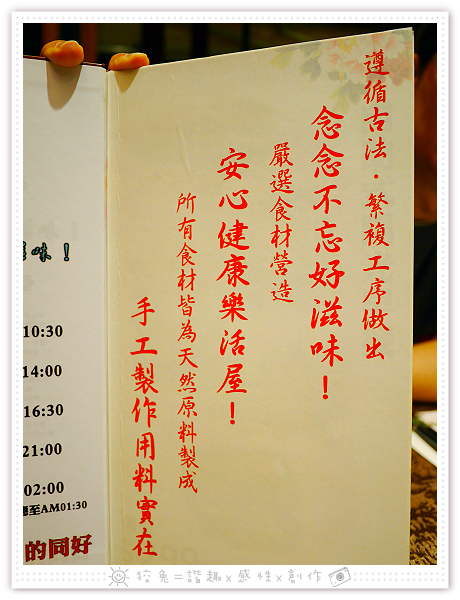 遵循古法·繁複工序做出
念念不忘好滋味！
嚴選食材營造
安心健康樂活屋！
所有食材皆為天然原料製成
手工製作用料實在
味！
10:30
14:00
16:30
21:00
02:00
至AM01:30
的同好
狡兔=諧趣x感性x創作